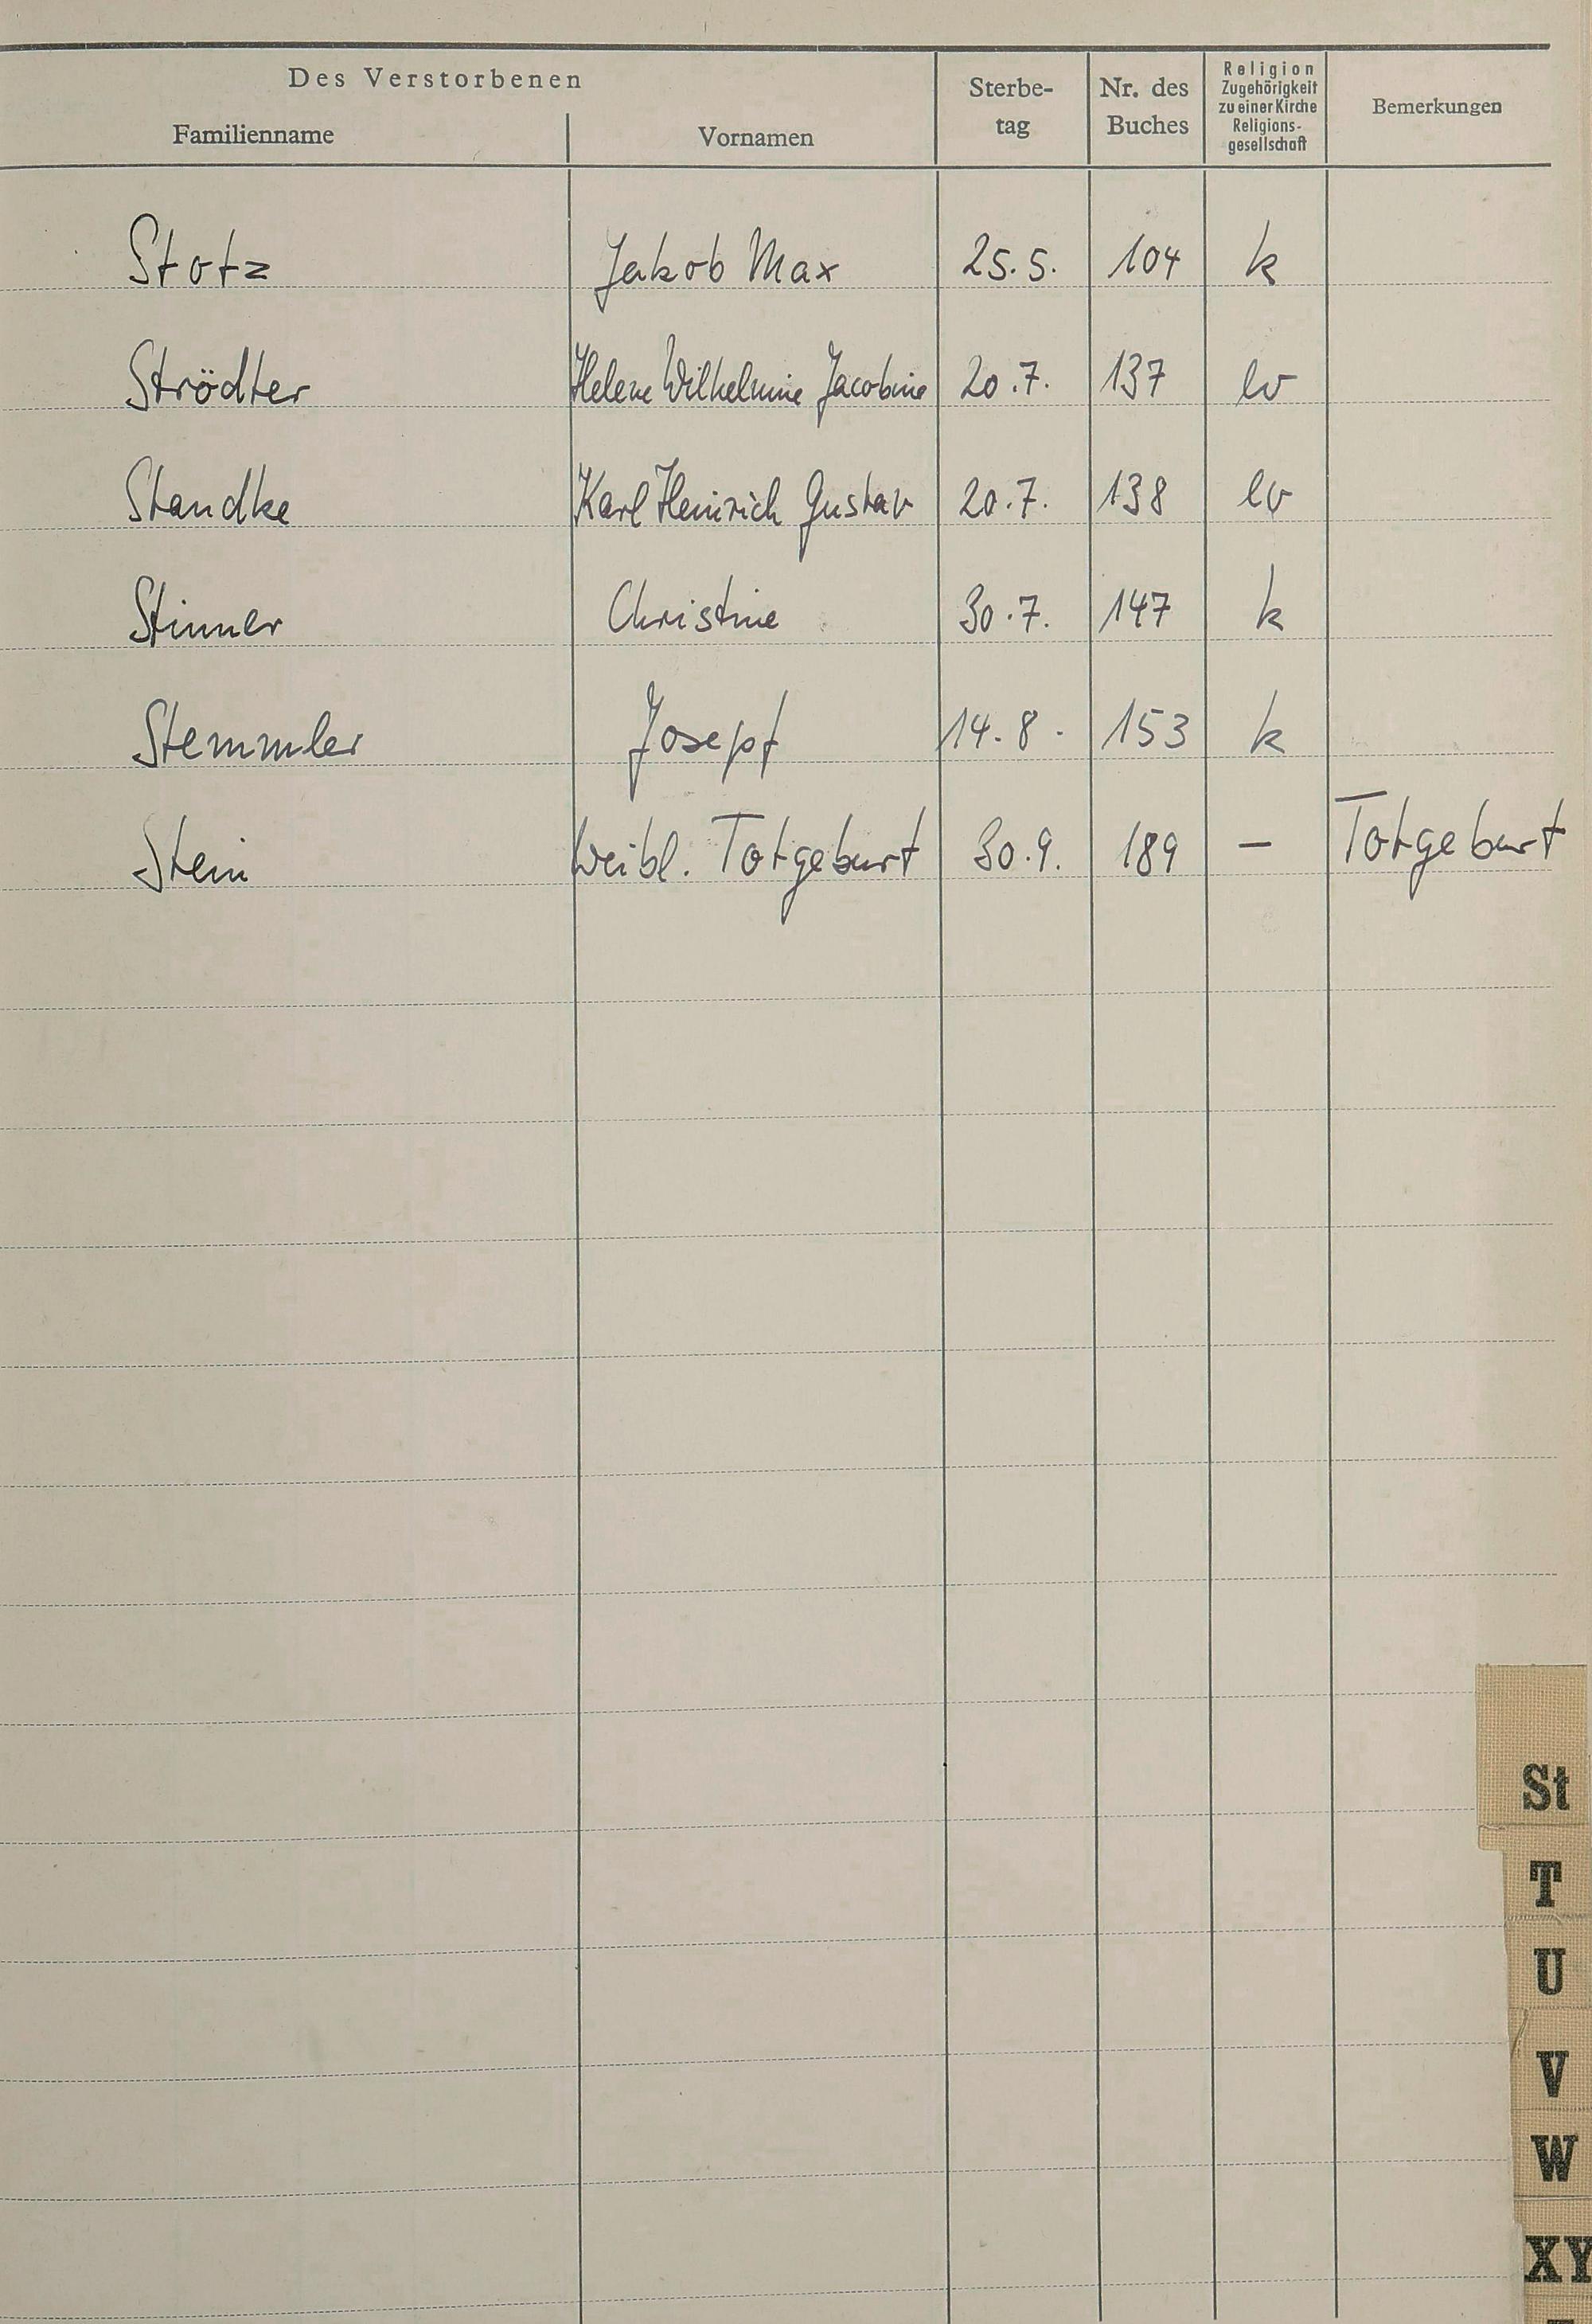 Des Verstorbenen
Familienname
Vornamen
Sterbe-
tag
Nr. des
Buches
Religion
Zugehörigkeit
zu einer Kirche
Religions-
gesellschaft
Bemerkungen
Stotz Jakob Max 25.5. 104 k
Strödter Helene Wilhelmine Jacobine 20.7. 137 ev
Standke Karl Heinrich Gustav 20.7. 138 ev
Stinner Christine 30.7. 147 k
Stemmler Josepf 14.8. 153 k
Stein Weibl. Totgeburt 30.9. 189 – Totgeburt
St
T
U
V
W
XY